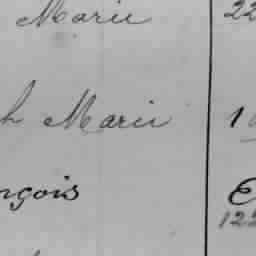 Marie 22
h Marie 1
nçois
122